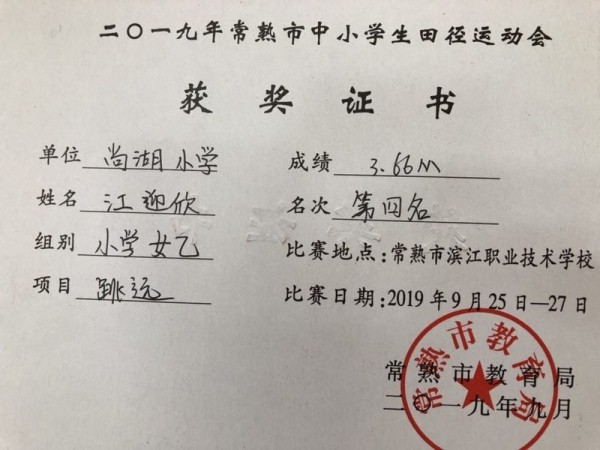 二〇一九年常熟市中小学生田径运动会
获奖证书
单位 尚湖小学 成绩 3.66M
姓名 江迎欣 名次 第四名
组别 小学女乙 比赛地点：常熟市滨江职业技术学校
项目 跳远 比赛日期：2019年9月25日—27日
常熟市教育局
常熟市教育局
二〇一九年九月